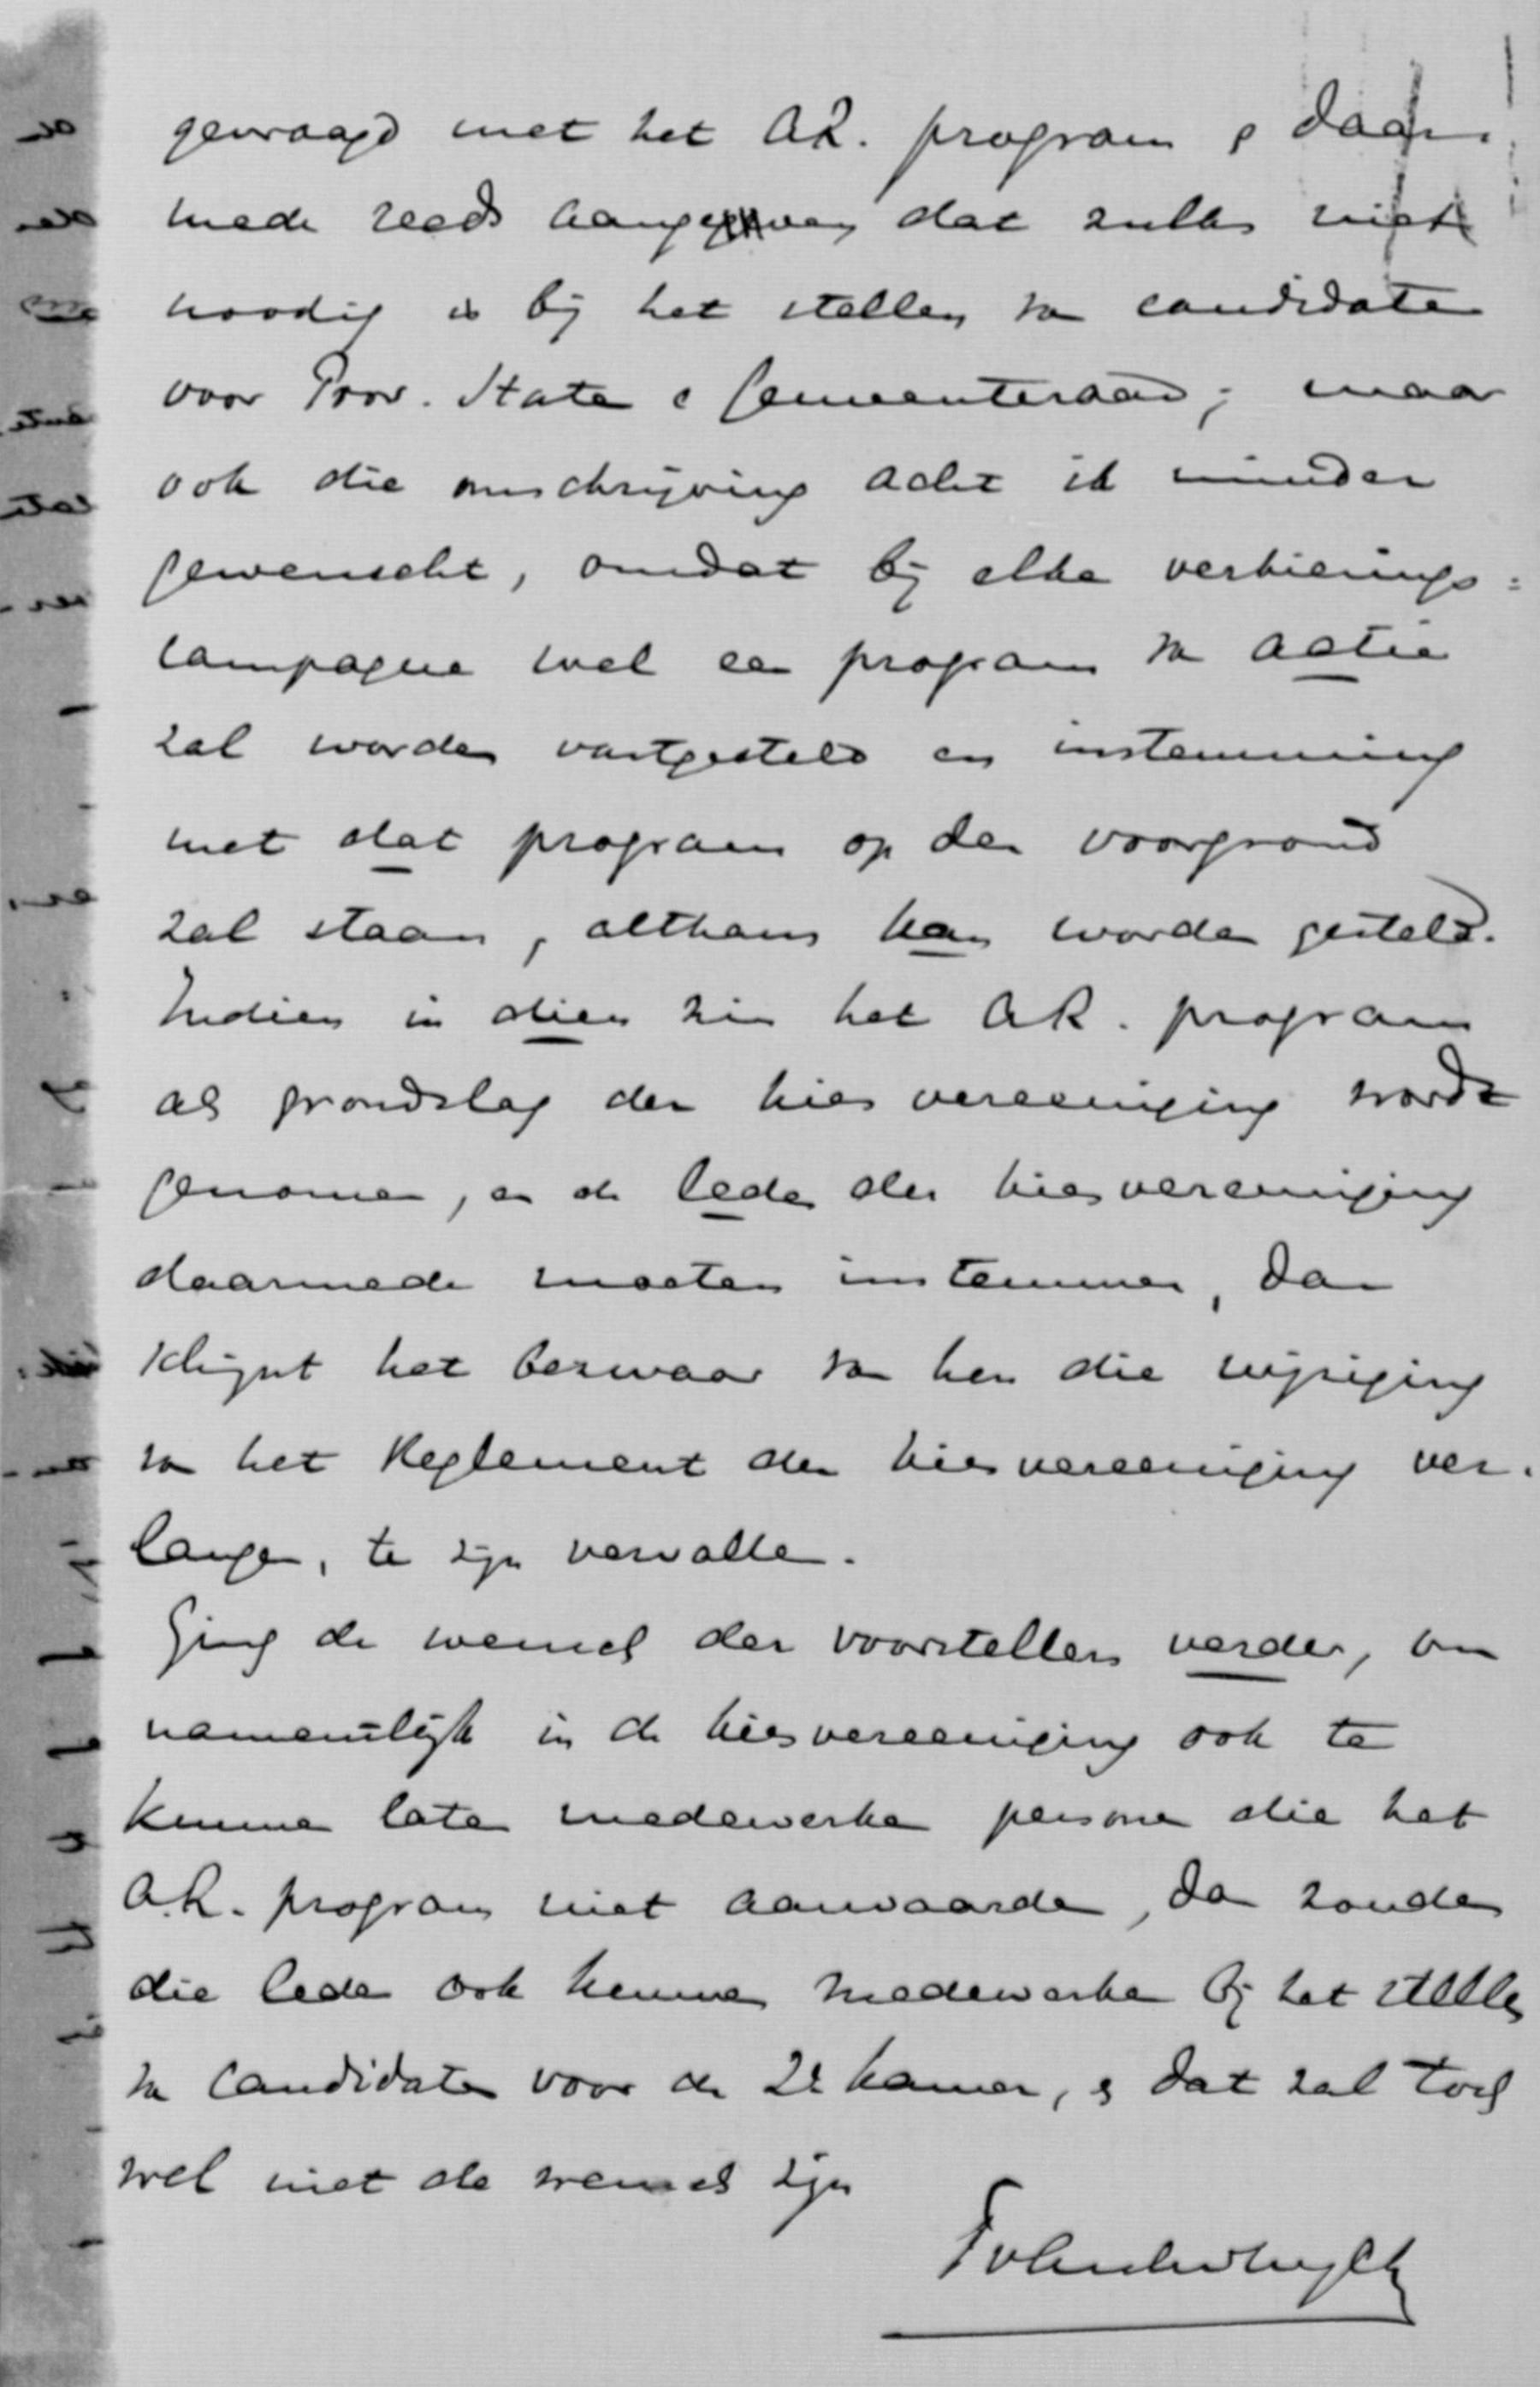 gevraagd met het A.R. program & daar-
mede reeds aangegeven dat zulks niet
noodig is bij het stellen van candidaten
voor Prov. Staten & Gemeenteraad; maar
ook die omschrijving acht ik minder
gewenscht, omdat bij elke verkiezings=
campagne wel een program van actie
zal worden vastgesteld en instemming
met dat program op den voorgrond
zal staan, althans kan worden gesteld.
Indien in dien zin het A.R. program
als grondslag der kiesvereeniging wordt
genomen, en de leden der kiesvereeniging
daarmede moeten instemmen, dan
schijnt het bezwaar van hen die wijziging
van het Reglement der kiesvereeniging ver-
langen, te zijn vervallen.
Ging de wensch der voorstellers verder, om
namentlijk in de kiesvereeniging ook te
kunnen laten medewerken personen die het
A.R. program niet aanvaarden, dan zouden
die leden ook kunnen medewerken bij het stellen
van candidaten voor de 2e kamer, & dat zal toch
wel niet de wensch zijn